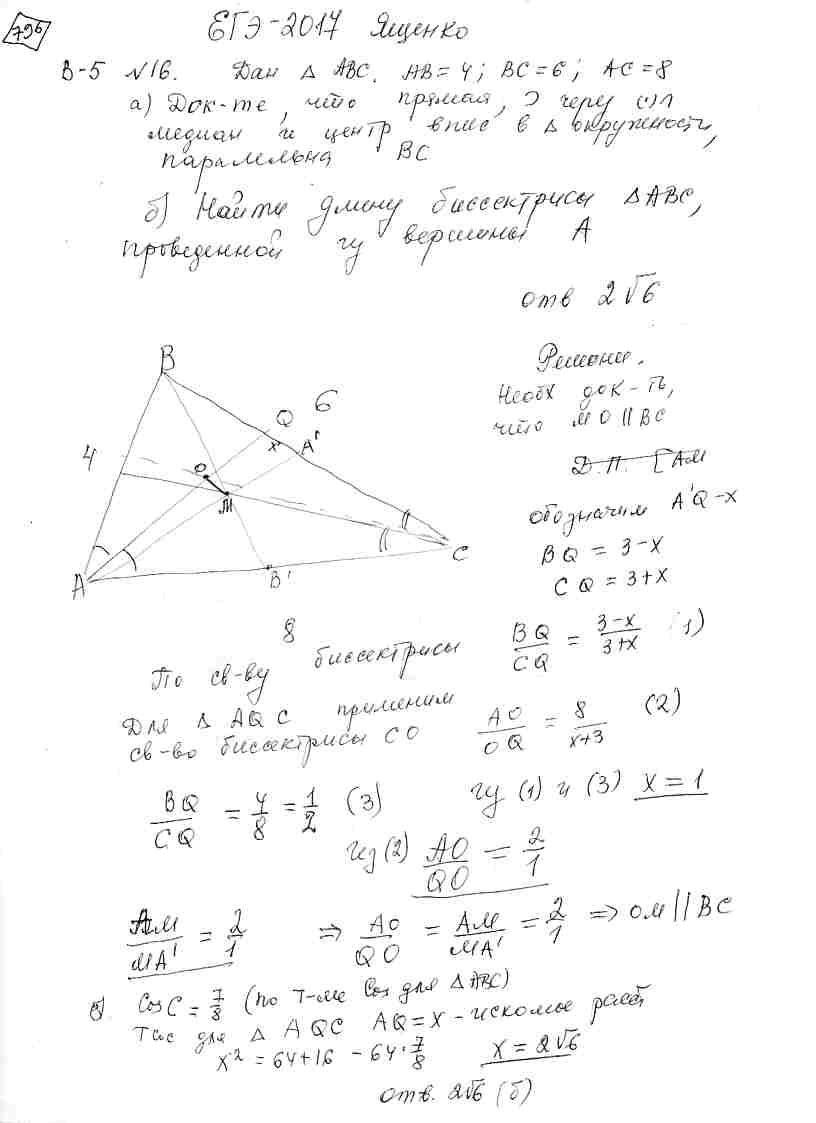 796
ЕГЭ-2017 Ященко
В-5 №16. Дан Δ ABC. AB=4; BC=6; AC=8
а) Док-те, что прямая, через
медиан и центр впис в Δ окружности,
паралельна BC
б) Найти длину биссектрисы ΔABC,
проведенной из вершины A
отв 2√6
Решение.
Необх док-ть,
что MO || BC
Д.П. [AM
обозначим A'Q-x
BQ = 3-x
CQ = 3+x
B
Q
6
x
A'
4
O
M
A
B'
C
8
По св-ву биссектрисы BQ/CQ = 3-x/3+x (1)
Для Δ AQC применим
св-во биссектрисы CO AO/OQ = 8/x+3 (2)
BQ/CQ = 4/8 = 1/2 (3) из (1) и (3) x=1
Из (2) AO/QO = 2/1
AM/MA' = 2/1 ⇒ AO/QO = AM/MA' = 2/1 ⇒ OM || BC
б) Cos C = 7/8 (по т-ме Cos для ΔABC)
для Δ AQC AQ=x - искомое
x² = 64+16 - 64·7/8 x = 2√6
Отв. 2√6 (б)